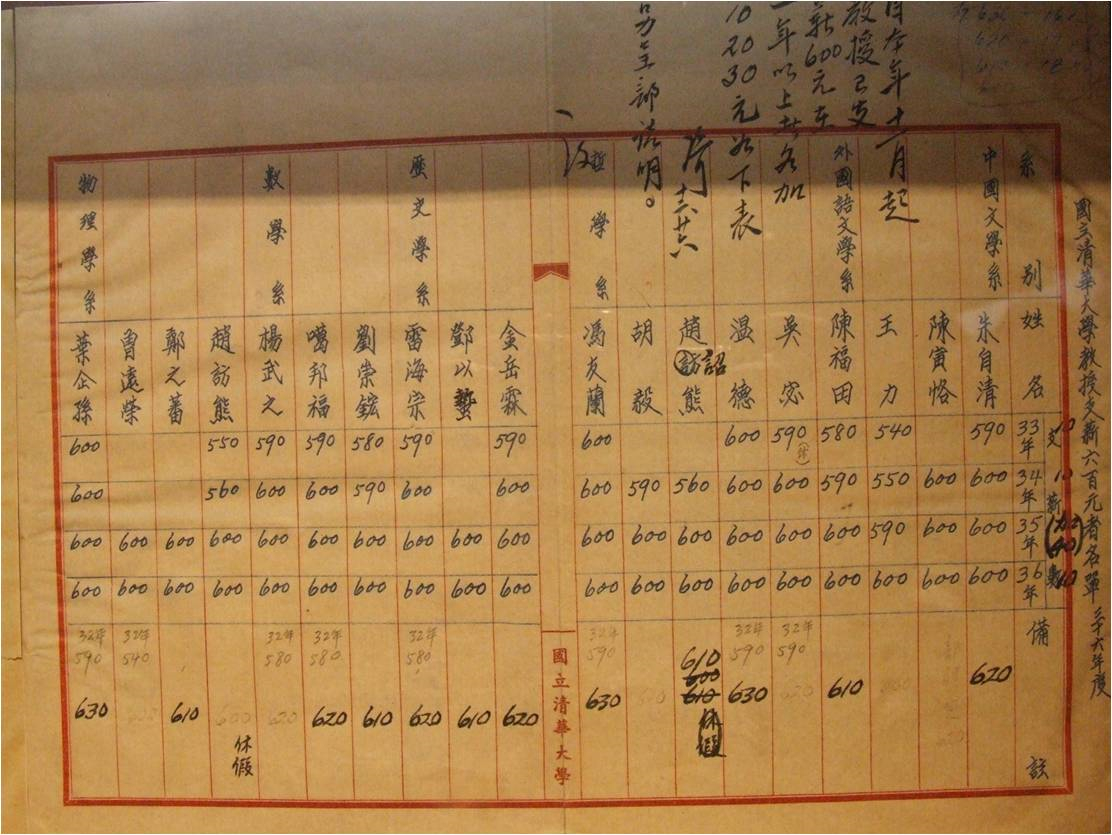 國立清華大學教授支薪六百元者名單 三十六年度
系別 姓名 33年 34年 35年 36年 備註
支薪數
中國文學系 朱自清 590 600 600 600 620
陳寅恪 600 600 600
王力 540 550 590 600
外國語文學系 陳福田 580 590 600 600 610
吳宓 590(休) 600 600 600 32年 590
溫德 600 600 600 600 32年 590 630
趙訪熊 詔 560 600 600 610 600 610 休假
胡毅 590 600 600
哲學系 馮友蘭 600 600 600 600 32年 590 630
金岳霖 590 600 600 600 620
鄧以蟄 600 600 610
歷史學系 雷海宗 590 600 600 600 32年 580 620
劉崇鋐 580 590 600 600 610
噶邦福 590 600 600 600 32年 580 620
數學系 楊武之 590 600 600 600 32年 580 620
趙訪熊 550 560 600 600 600 休假
鄭之蕃 600 600 610
曾遠榮 600 600 32年 540
物理學系 葉企孫 600 600 600 600 32年 590 630
自本年十一月起
教授已支
薪600元在
一年以上者各加
10 20 30元如下表
另呈部說明。
國立清華大學